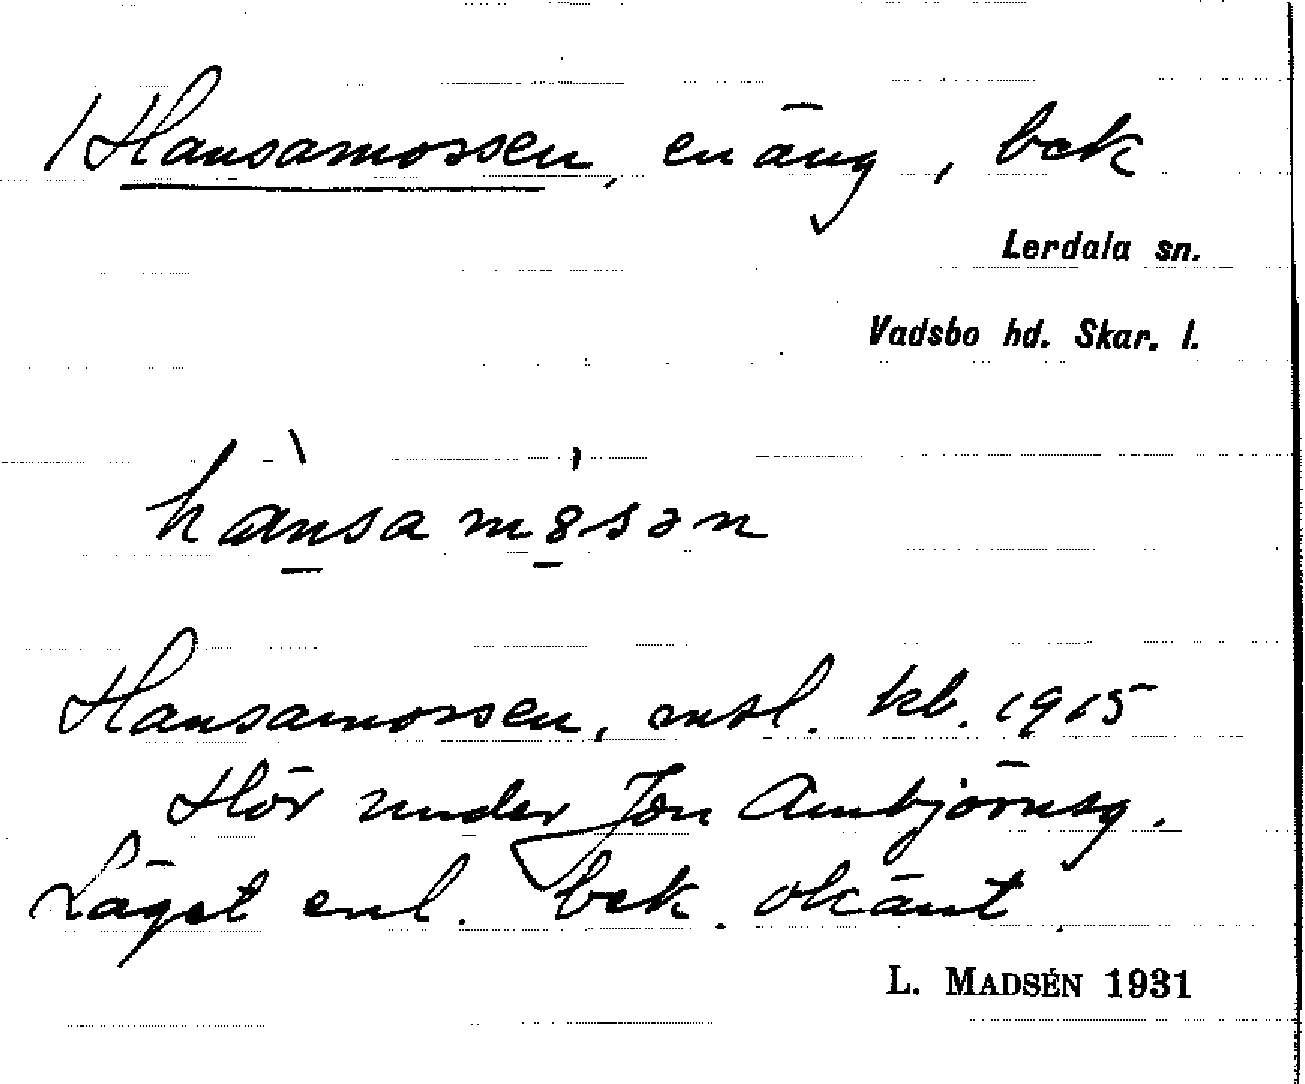 1 Hansamossen, en äng, bek
Lerdala sn.
Vadsbo hd. Skar. l.
hànsamósən
Hansamossen, mtsl. kb. 1915
Hör under Jon Ambjörnsg.
Läget enl. bek. okänt.
L. MADSÉN 1931